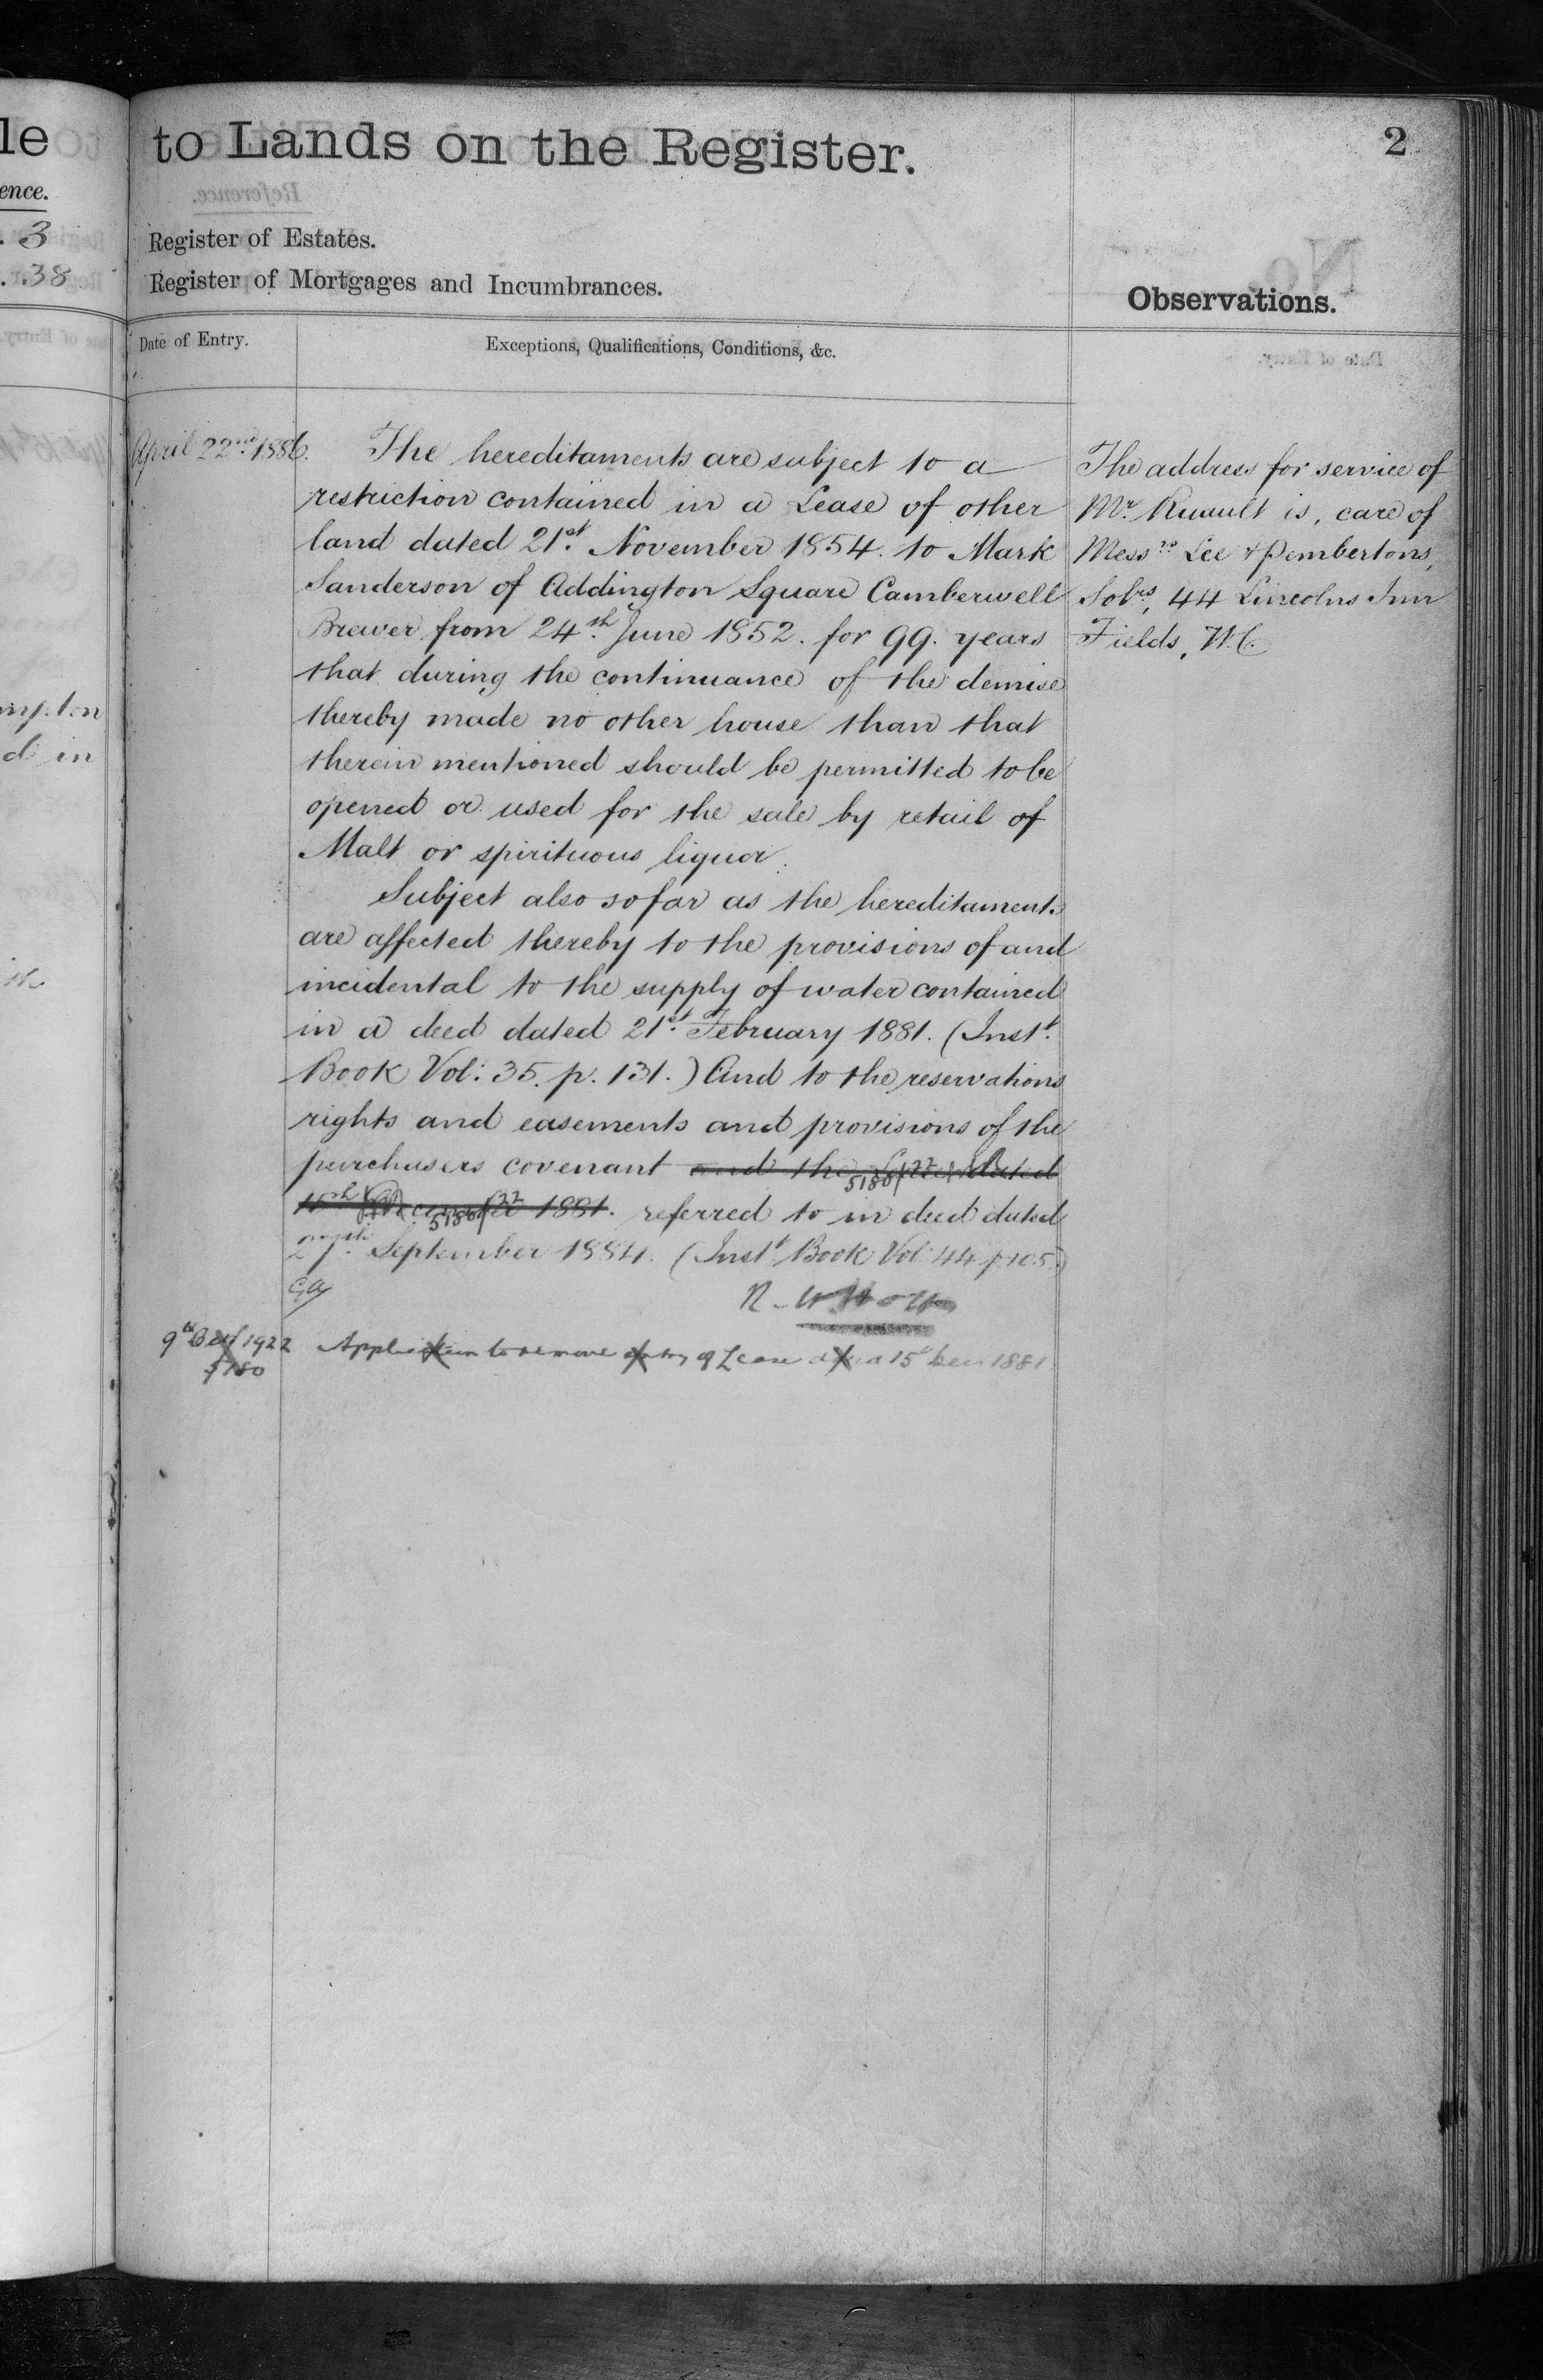 le
ence.
. 3
. . 38
mpton
d in
th
to Lands on the Register.
2
Register of Estates.
Register of Mortgages and Incumbrances.
Observations.
Date of Entry.
Exceptions, Qualifications, Conditions, &c.
April 22nd 1886.
The hereditaments are subject to a
restriction contained in a Lease of other
land dated 21st. November 1854. to Mark
Sanderson of Addington Square Camberwell
Brewer from 24th. June 1852. for 99. years
that during the continuance of the demise
thereby made no other house than that
therein mentioned should be permitted to be
opened or used for the sale by retail of
Malt or spirituous liquor.
Subject also so far as the hereditaments
are affected thereby to the provisions of and
incidental to the supply of water contained
in a deed dated 21st. February 1881. (Instt.
Book Vol: 35. p. 131.) And to the reservations
rights and easements and provisions of the
purchasers covenant and the Lease dated
5180/22
15th December 1881. referred to in deed dated
5180/22
27th. September 1884. (Instt. Book Vol: 44 p 105.)
9th Dec 1922
5180
Application to remove entry of Lease dated 15 Dec 1881
The address for service of
Mr. Ruault is, care of
Messrs Lee & Pembertons,
Solrs, 44 Lincolns Inn
Fields, W.C.